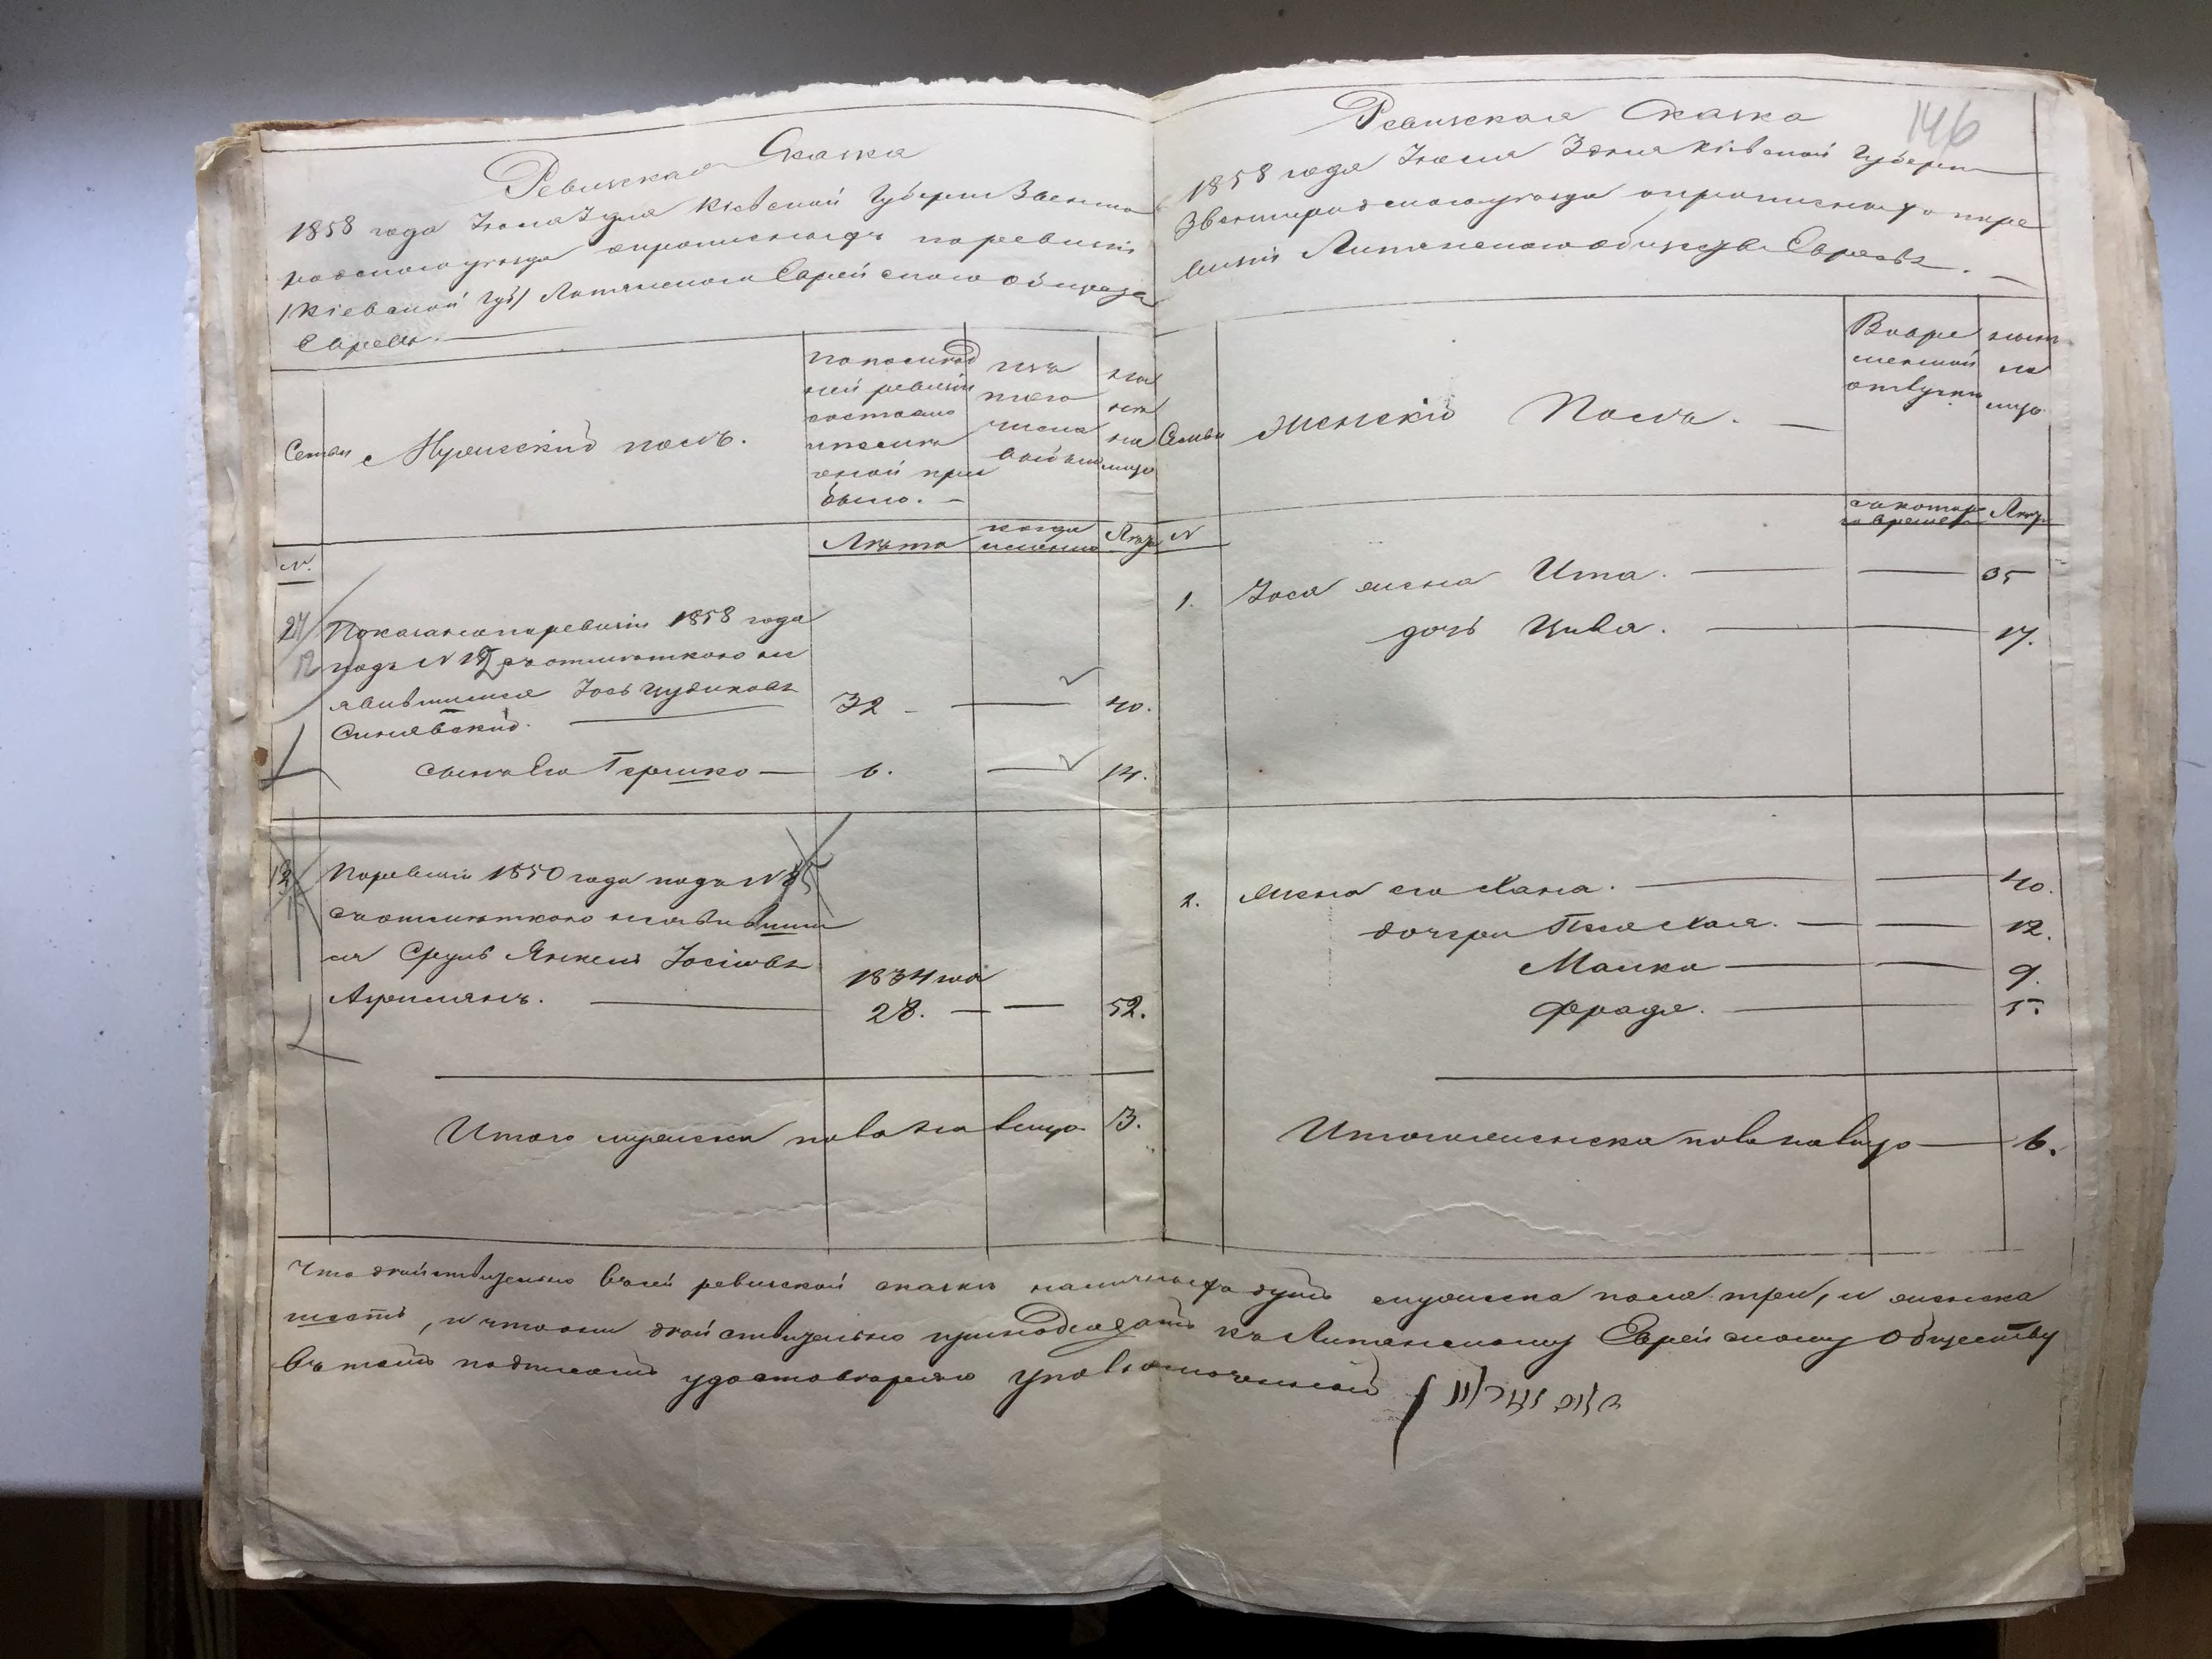 Ревизская Сказка
1858 года Іюля 3 дня Кіевской Губерніи Звениго
родскаго уезда о прописныхъ по ревизіи
/Кіевской Губ/ Лысянскаго Еврейскаго Общества
Евреевъ.
Семьи
Мужескій полъ.
По послѣд
ней ревизіи
состояло
и послѣ
оной при
было.
Изъ
того
числа
выбыло
Ны
нѣ
на
лицо
Лѣта
когда
именно
Лѣта
№.
24
12
Показан по ревизіи 1858 года
подъ № 12 съ отмѣткою не
явившимся Іось
Синявскій.
32
40.
сынъ Его Гершко
6.
14.
12
По ревизіи 1850 года подъ № 85
съ отмѣткою неявившим
ся Сруль Янкель Іосіовъ
1834 го
28.
52.
Итого мужеска пола на лицо
3.
Ревизская Сказка
146
1858 года Іюля 3 дня Кіевской Губерніи
Звенигородскаго уезда о прописныхъ по ре
визіи Лысянскаго общества Евреевъ.
Семьи
Женскій Полъ.
Во вре
менной
отлучкѣ
нынѣ
на
лицо
съ котора
го времени
Лѣта
№
1.
Іося жена Ита.
35
дочь Цивья.
17.
2.
Жена его Хана.
40.
дочери
12.
Малка
9.
Фрада.
5.
Итого женска пола на лицо
6.
Что дѣйствительно въ сей ревизской сказкѣ наличныхъ душъ мужеска пола три, и женска
шесть, и что они дѣйствительно принадлежатъ къ Лысянскому Еврейскому Обществу
въ томъ подписомъ удостовѣряю уполномоченный